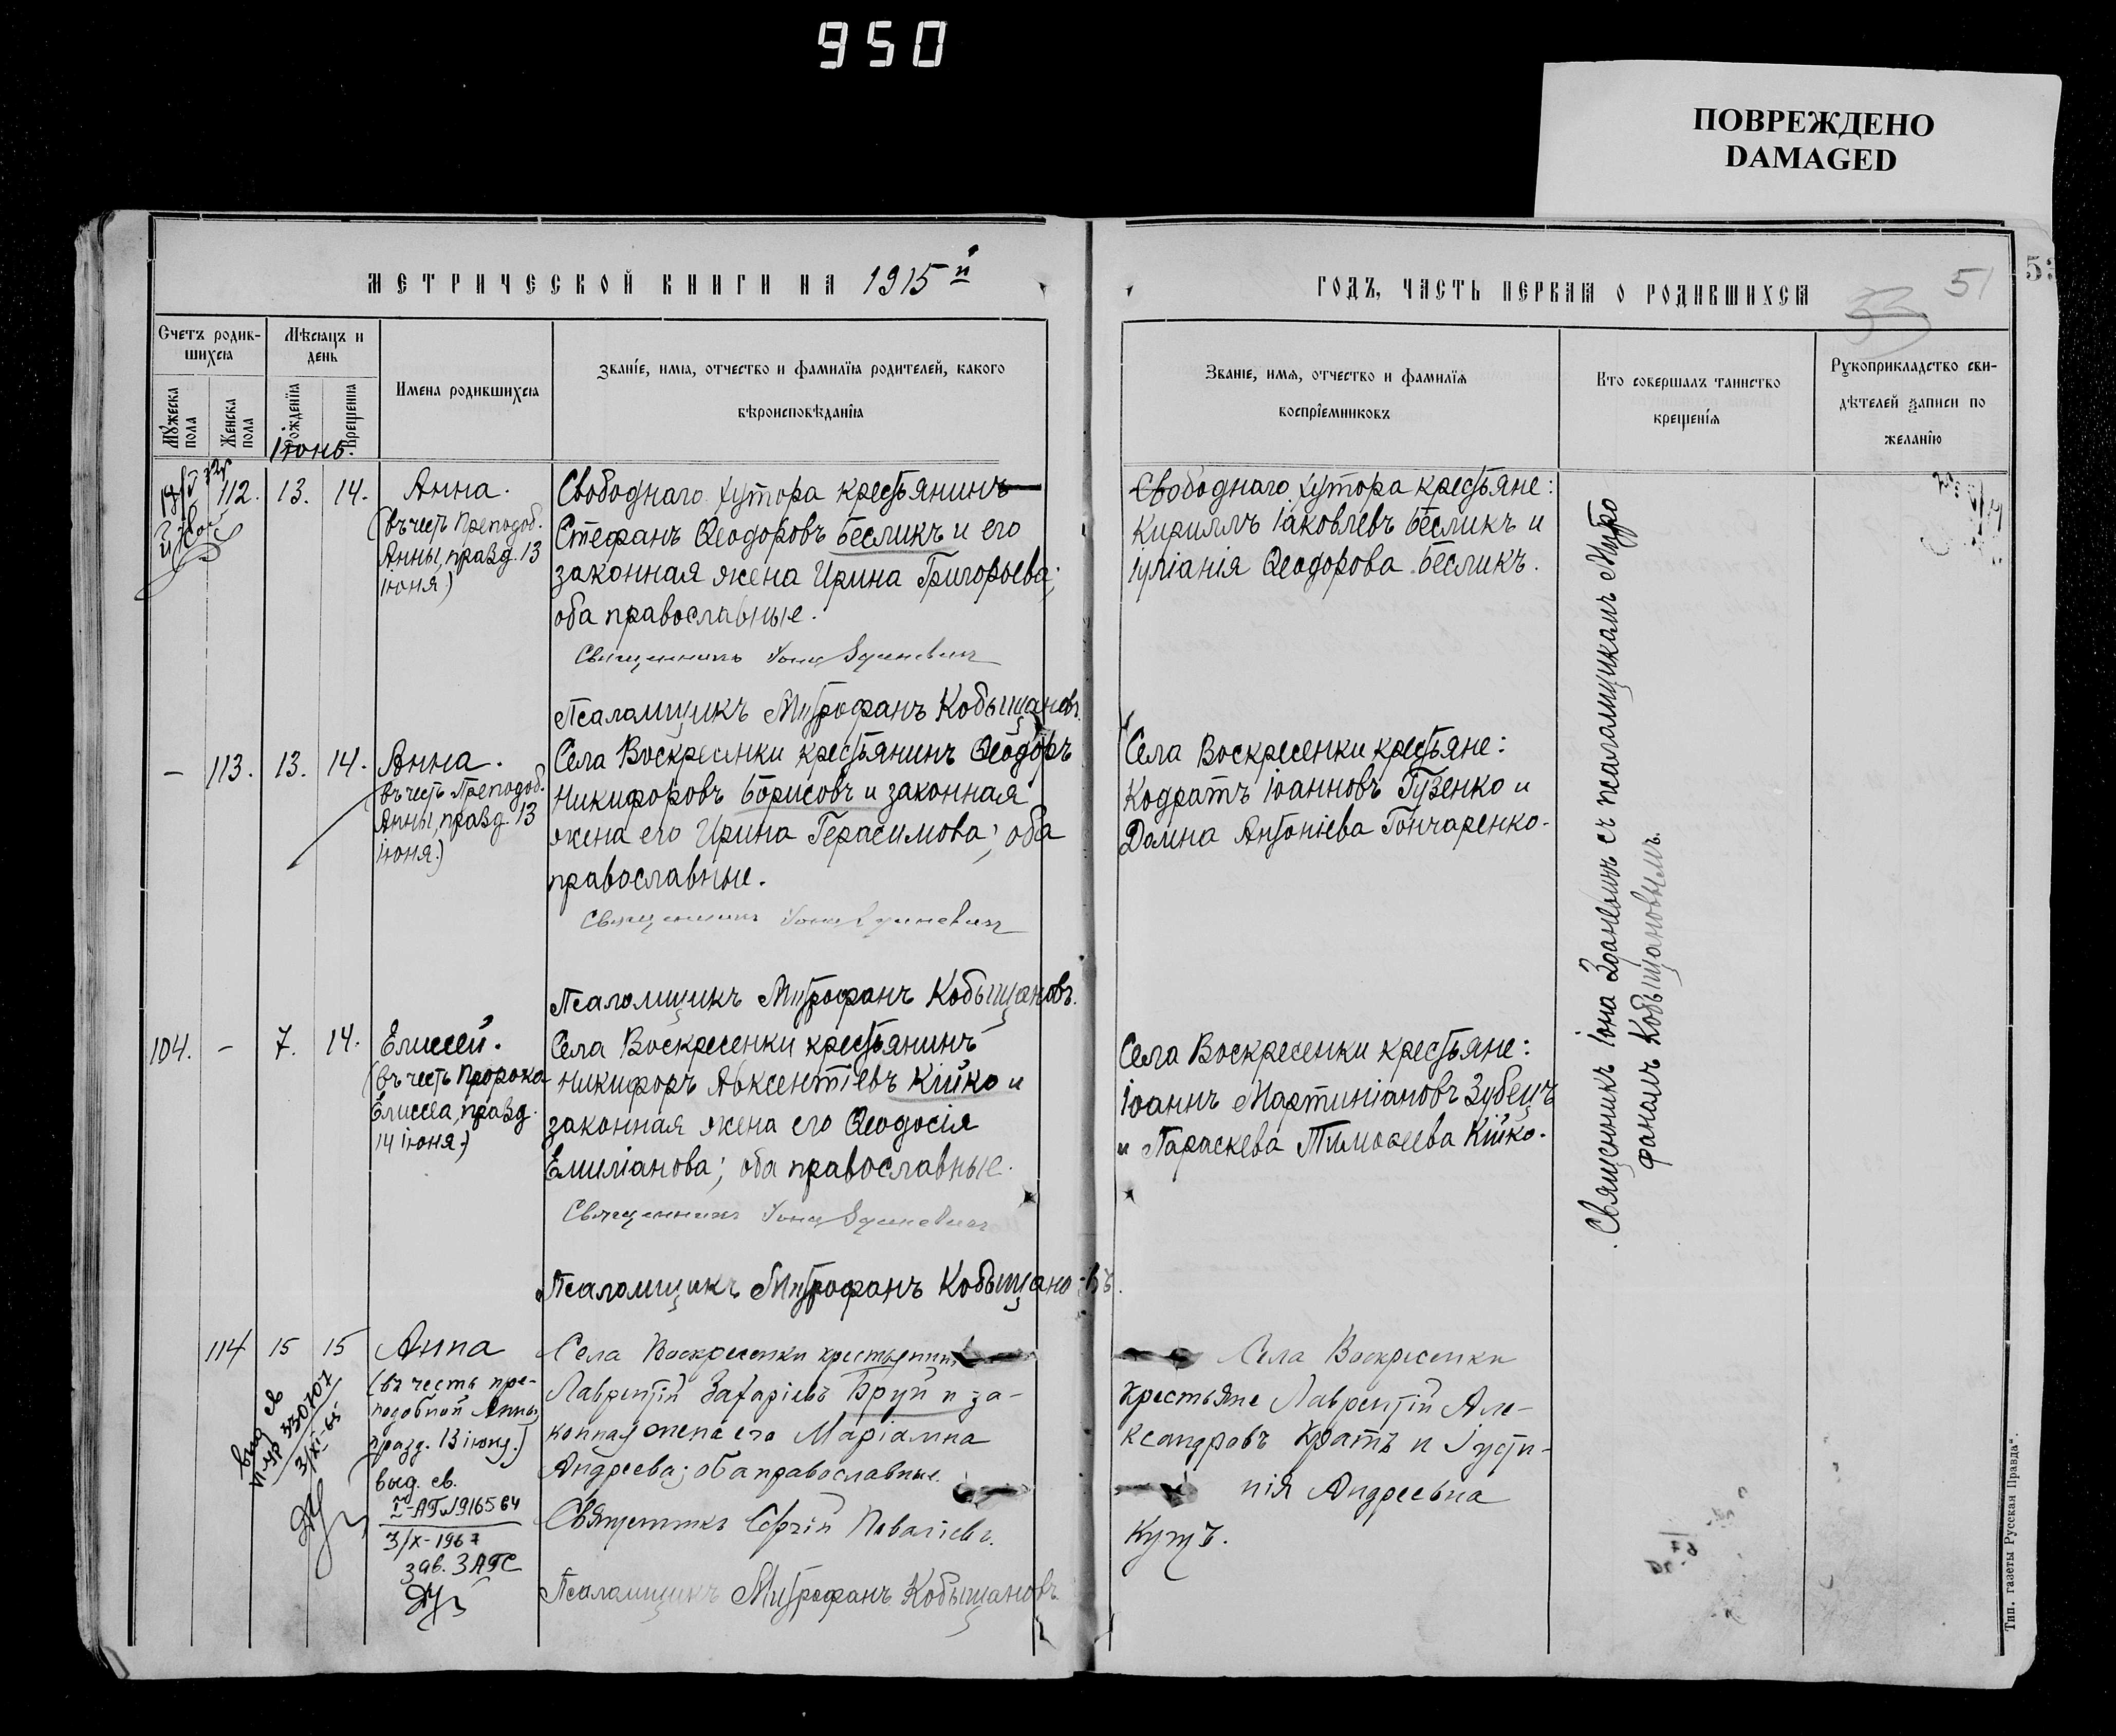 950
ПОВРЕЖДЕНО
DAMAGED
МЕТРИЧЕСКОЙ КНИГИ НА 1915й
Счетъ родив-
шихся
Мѣсяцъ и
день
Мужеска
пола
Женска
пола
Рожденія
Крещенія
Имена родившихся
Званіе, имя, отчество и фамилія родителей, какого
вѣроисповѣданія
Іюнь.
112. 13. 14.
Анна.
(въ честь Преподоб.
Анны, празд. 13
іюня)
Свободнаго хутора крестьянинъ
Стефанъ Ѳеодоровъ Бесликъ и его
законная жена Ирина Григорьева;
оба православные.
Священникъ Іона
Псаломщикъ Митрофанъ Кобыщановъ.
– 113. 13. 14.
Анна.
(въ честь Преподоб.
Анны, празд. 13
іюня.)
Села Воскресенки крестьянинъ Ѳеодоръ
Никифоровъ Борисовъ и законная
жена его Ирина Герасимова; оба
православные.
Священникъ Іона
Псаломщикъ Митрофанъ Кобыщановъ.
104. – 7. 14.
Елисей.
(въ честь Пророка
Елисея, празд.
14 іюня)
Села Воскресенки крестьянинъ
Никифоръ Авксентіевъ Кійко и
законная жена его Ѳеодосія
Емиліанова; оба православные.
Священникъ Іона
Псаломщикъ Митрофанъ Кобыщановъ.
114 15 15
Анна
(въ честь пре-
подобной Анны,
празд. 13 іюня.)
выд. св.
I-АП №916564
3/X-1967
зав. ЗАГС
выд св
330707
3/XI-65
Села Воскресенки крестьянинъ
Лаврентій Захаріевъ Бруй и за-
конная жена его Маріамна
Андреева; оба православные.
Священникъ Сергій
Псаломщикъ Митрофанъ Кобыщановъ.
ГОДЪ, ЧАСТЬ ПЕРВАЯ О РОДИВШИХСЯ
51
53
Званіе, имя, отчество и фамилія
воспріемниковъ
Кто совершалъ таинство
крещенія
Рукоприкладство сви-
дѣтелей записи по
желанію
Свободнаго хутора крестьяне:
Кириллъ Іаковлевъ Бесликъ и
Іуліанія Ѳеодорова Бесликъ.
Села Воскресенки крестьяне:
Кодратъ Іоанновъ Гузенко и
Домна Антоніева Гончаренко.
Села Воскресенки крестьяне:
Іоаннъ Мартиніановъ Зубецъ
и Параскева Тимоѳеева Кійко.
Села Воскресенки
крестьяне Лаврентій Але-
ксандровъ Кратъ и Іусти-
нія Андреевна
Кущъ.
Священникъ Іона Зданевичъ съ псаломщикомъ Митро
фаномъ Кобыщановымъ.
Тип. газеты Русская Правда“.